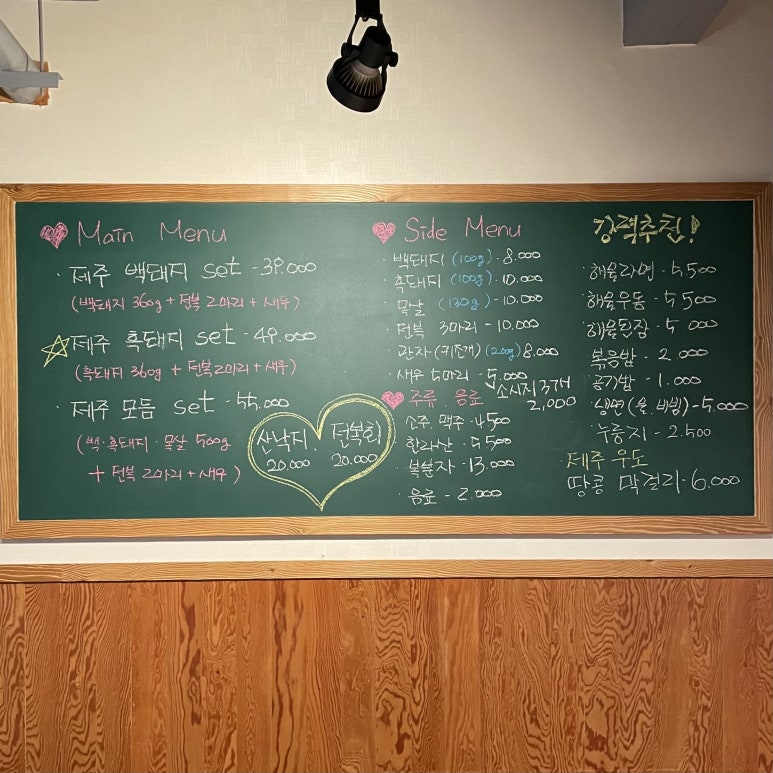 Main Menu
· 제주 백돼지 set - 39.000
(백돼지 360g + 전복 2마리 + 새우)
제주 흑돼지 set - 49.000
(흑돼지 360g + 전복2마리 + 새우)
· 제주 모듬 set - 55.000
(백·흑돼지·목살 500g
+ 전복 2마리 + 새우)
산낙지. 전복회
20.000 20.000
Side Menu
· 백돼지 (100g) - 8.000
· 흑돼지 (100g) - 10.000
· 목살 (130g) - 10.000
· 전복 3마리 - 10,000
· 관자(키조개) (200g) 8.000
· 새우 5마리 - 5.000
소시지 3개
2,000
주류. 음료
· 소주. 맥주 - 4500
· 한라산 - 5.500
· 복분자 - 13.000
· 음료 - 2.000
강력추천!
· 해물라면 - 5.500
· 해물우동 - 5.500
· 해물된장 - 5.000
· 볶음밥 - 2.000
· 공기밥 - 1.000
· 냉면(물.비빔) - 5,000
· 누룽지 - 2.500
· 제주 우도
땅콩 막걸리 - 6.000